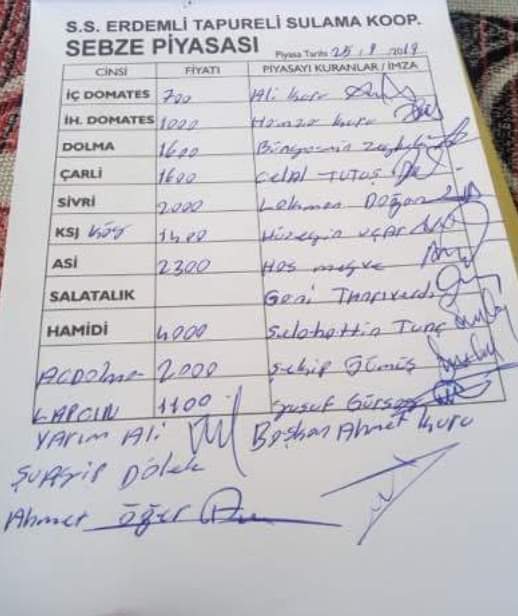 S.S. ERDEMLİ TAPURELİ SULAMA KOOP.
SEBZE PİYASASI Piyasa Tarihi 25.9.2019
CİNSİ FİYATI PİYASAYI KURANLAR / İMZA
İÇ DOMATES 700 Ali Kuru
İH. DOMATES 1000 Hamza Kuru
DOLMA 1600 Bünyamin
ÇARLİ 1600 Celal TUTUŞ
SİVRİ 2000 Lokman Doğan
KSJ Köy 1400 Hüseyin UÇAR
ASİ 2300 Has meyve
SALATALIK Gani Tanrıverdi
HAMİDİ 4000 Selahattin Tunç
ACDolma 2000 Şekip Gümüş
KAPÇIN 1100 Yusuf Gürsoy
YARIM Ali Başkan Ahmet Kuru
ŞUAYİP Dölek
Ahmet Öğer